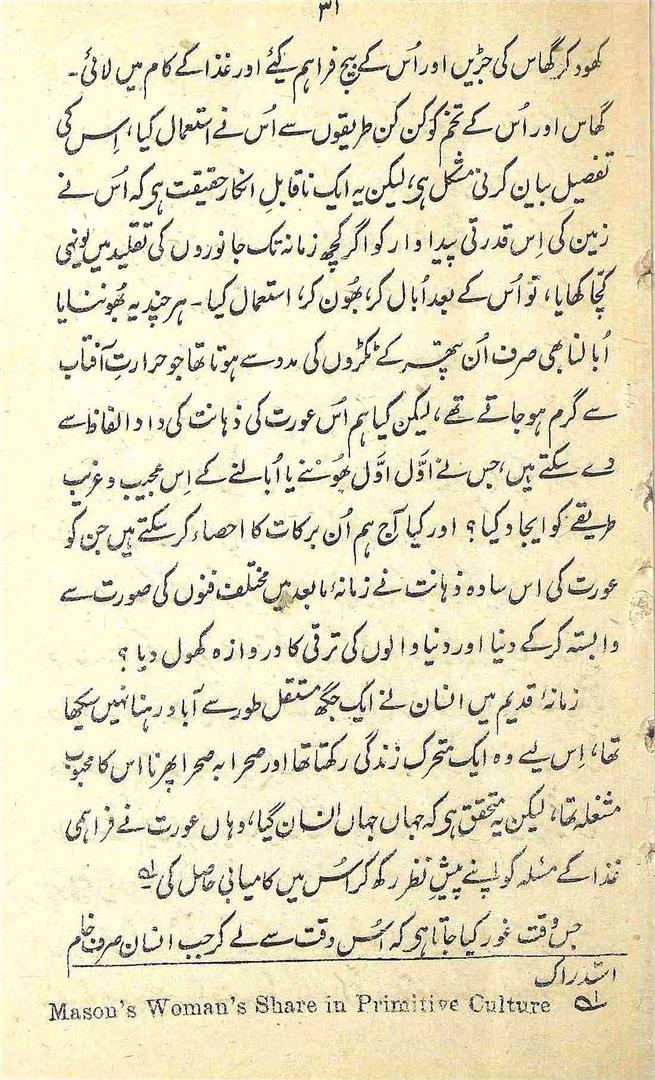 ۳۱
کھود کر گھاس کی جڑیں اور اُس کے بیج فراہم کیٔے اور غذا کے کام میں لائی۔
گھاس اور اُس کے تخم کو کن کن طریقوں سے اُس نے استعمال کیا، اِس کی
تفصیل بیان کرنی مشکل ہی، لیکن یہ ایک ناقابلِ انکار حقیقت ہی کہ اُس نے
زمین کی اِس قدرتی پیداوار کو اگر کچھ زمانہ تک جانوروں کی تقلید میں یونہی
کچّا کھایا، تو اُس کے بعد اُبال کر، بھُون کر، استعمال کیا۔ ہر چند یہ بھُوننا یا
اُبالنا بھی صرف اُن پتھر کے ٹکڑوں کی مدد سے ہوتا تھا جو حرارتِ آفتاب
سے گرم ہو جاتے تھے، لیکن کیا ہم اُس عورت کی ذہانت کی داد الفاظ سے
دے سکتے ہیں، جس نے اوَّل اوَّل بھُوننے یا اُبالنے کے اِس عجیب و غریب
طریقے کو ایجاد کیا؟ اور کیا آج ہم اُن برکات کا احصاء کر سکتے ہیں جن کو
عورت کی اس سادہ ذہانت نے زمانۂ مابعد میں مختلف فنوں کی صورت سے
وابستہ کر کے دنیا اور دنیا والوں کی ترقی کا دروازہ کھول دیا؟
زمانۂ قدیم میں انسان نے ایک جگھ مستقل طور سے آباد رہنا نہیں سیکھا
تھا، اِس لیے وہ ایک متحرک زندگی رکھتا تھا اور صحرا بہ صحرا پھرنا اس کا محبوب
مشغلہ تھا، لیکن یہ متحقق ہی کہ جہاں جہاں انسان گیا، وہاں عورت نے فراہمی
غذا کے مسئلہ کو اپنے پیشِ نظر رکھ کر اُس میں کامیابی حاصل کی ؎
جس وقت غور کیا جاتا ہی کہ اُس وقت سے لے کر جب انسان صرف خام
استدراک
؎ Mason's Woman's Share in Primitive Culture